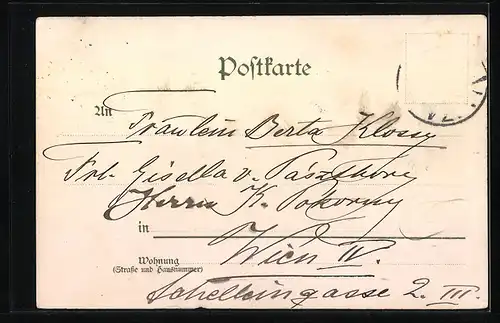 Postkarte
An
Fräulein Berta Klossy
Frl. Gisella v. Pászthory
Herrn K. Pokorny
in
Wien IV.
Wohnung
(Straße und Hausnummer)
Schelleingasse 2. III.